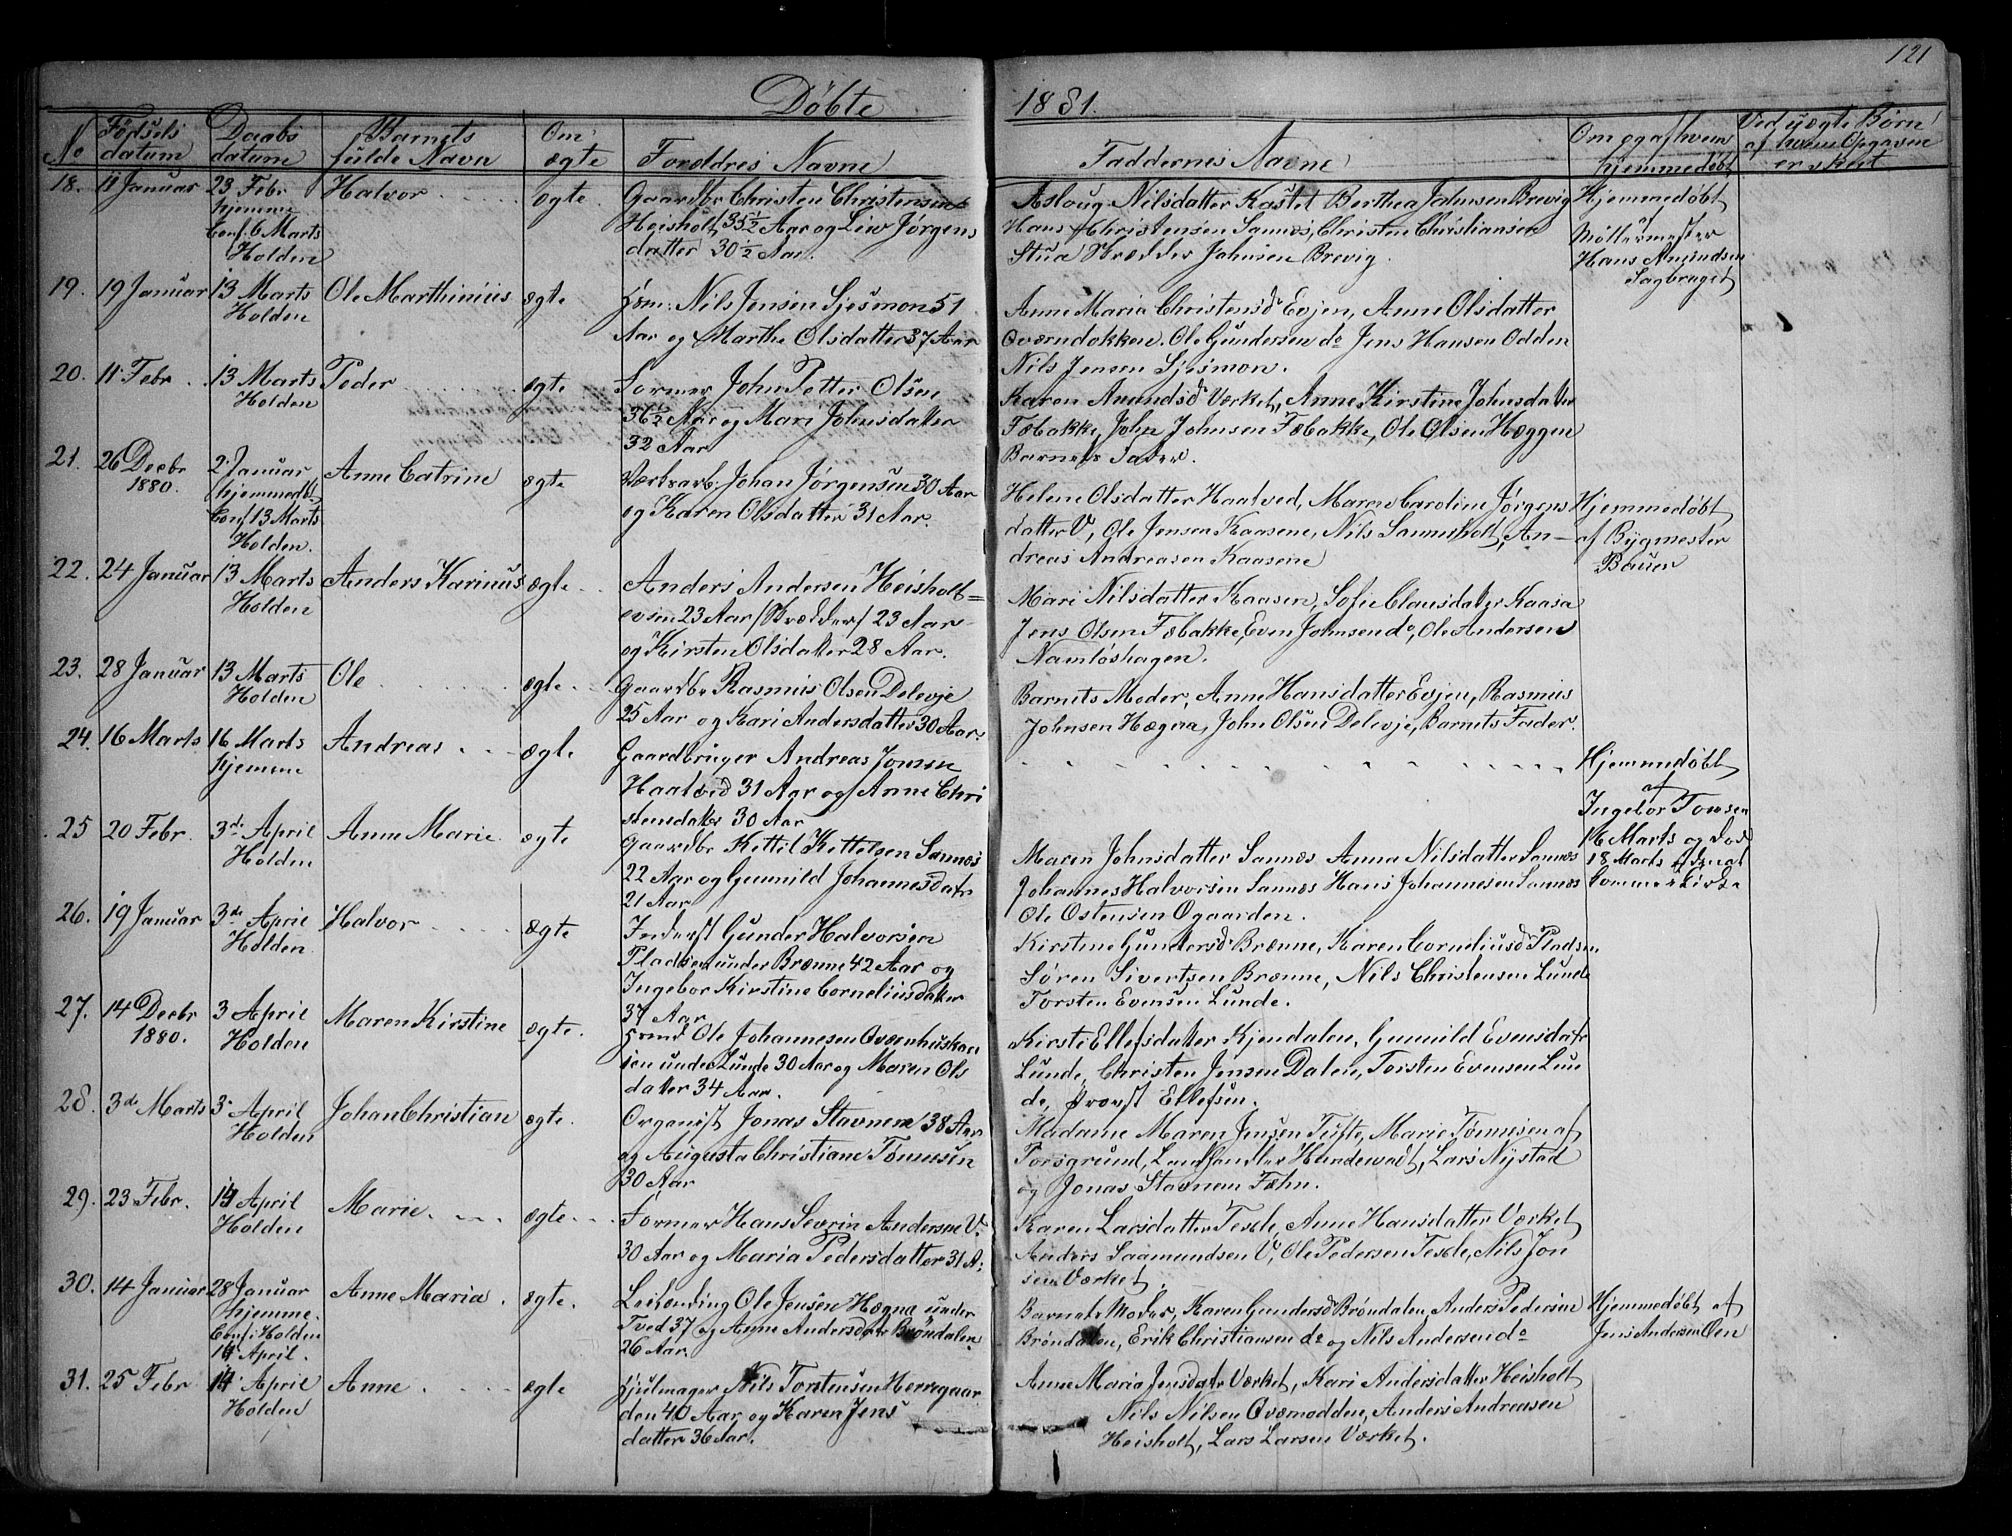 121
Döbte 1881.
No
Födsels datum
Daabs datum
Barnets fulde Navn
Om ægte
Forældres Navne
Faddernes Navne
Om og af hvem hjemmedöbt
Ved uægte Börn af hvem Opgaven er skeet
18. 11 Januar 23 Febr Halvor ægte Gaardbr Christen Christensen
hjemme Heisholt 35½ Aar og Liv Jørgens
Conf. 6 Marts datter 30½ Aar.
Holden
Aslaug Nilsdatter Kastet Berthea Johnsen Brevig
Hans Christensen Sannes, Christen Christiansen
Stua Skrædder Johnsen Brevig.
Hjemmedøbt
Möllermester
Hans Amundsen
Sagbruget
19. 19 Januar 13 Marts Ole Marthinius ægte Nils Jensen Sjesmon 51
Holden Aar og Marthe Olsdatter 37 Aar
Anne Maria Christensd Evjen, Anne Olsdatter
Ole Gundersen do Jens Hansen Odden
Nils Jensen Sjesmon.
20. 11 Febr. 13 Marts Peder ægte Former John Petter Olsen
Holden 36½ Aar og Mari Johnsdatter
32 Aar
Karen Amundsd Værket, Anne Kirstine Johnsdatter
Fæbakke, John Johnsen Fæbakke, Ole Olsen Hæggen
Barnets Fader.
21. 26 Decbr 2 Januar Anne Catrine ægte Værksarb. Johan Jørgensen 30 Aar
1880. hjemmedöbt og Karen Olsdatter 31 Aar.
Conf 13 Marts
Holden.
Helene Olsdatter Haatved, Maren Caroline Jørgens
datter V, Ole Jensen Kaasene, Nils Sannesholt, An-
dreas Andreasen Kaasene
Hjemmedøbt
af Bygmester
Bauer
22. 24 Januar 13 Marts Anders Karinus ægte Anders Andersen Heisholt=
Holden 23 Aar /Skrædder/ 23 Aar
og Kirsten Olsdatter 28 Aar.
Mari Nilsdatter Kaasen, Sofie Clausdatter Kaasa
Jens Olsen Fæbakke, Even Johnsen do, Ole Andersen
Namløshagen.
23. 28 Januar 13 Marts Ole ægte Gaardbr Rasmus Olsen Delevje
Holden 25 Aar og Kari Andersdatter 30 Aar.
Barnets Moder, Anne Hansdatter Evjen, Rasmus
Johnsen Hægna, John Olsen Delevje, Barnets Fader.
24. 16 Marts 16 Marts Andreas ægte Gaardbruger Andreas Jonsen
hjemme Haatved 31 Aar og Anne Chri
stensdatter 30 Aar
Hjemmedøbt
af
Ingebor Tonsen
16 Marts og Død
18 Marts
25 20 Febr. 3die April Anne Marie. ægte Gaardbr Kettil Kettelsen Sannes
Holden 22 Aar og Gunnild Johannesdatr
21 Aar
Maren Johnsdatter Sannes Anna Nilsdatter Sannes
Johannes Halvorsen Sannes Hans Johannesen Sannes
Ole Ostensen Ogaarden.
26. 19 Januar 3die April Halvor ægte Inderst Gunder Halvorsen
Holden Pladsen under Brænne 42 Aar og
Ingebor Kirstine Corneliusdatter
37 Aar
Kirstine Gundersd Brænne, Karen Corneliusd Pladsen
Søren Sivertsen Brænne, Nils Christensen Lunde
Torsten Evensen Lunde.
27. 14 Decbr 3 April Maren Kirstine ægte. Ole Johannesen Qværnhuskaa
1880. Holden sen under Lunde 30 Aar og Maren Ols
datter 34 Aar.
Kirsti Ellefsdatter Kjendalen, Gunnild Evensdatr
Lunde, Christen Jensen Dalen, Torsten Evensen Lun
de, Provst Ellefsen.
28. 3de Marts 3. April Johan Christian ægte. Organist Jonas Stavnem 38 Aar
Holden og Augusta Christiane Tønnesen
30 Aar
Madame Maren Jensen Tufte, Marie Tønnesen af
Porsgrund, Landhandler Hundevadt, Lars Nystad
og Jonas Stavnem Fæhn.
29. 23 Febr. 14 April Marie. ægte Former Hans Severin Andersen V.
Holden 30 Aar og Maria Pedersdatter 31 A.
Karen Larsdatter Tesde, Anne Hansdatter Værket
Anders Saamundsen V, Ole Pedersen Tesde, Nils Jon
sen Værket.
30. 14 Januar 28 Januar Anne Maria. ægte. Leilending Ole Jensen Hægna under
hjemme. Tved 37 og Anne Andersdatr Brøndalen
Conf: Holden 26 Aar.
14 April.
Barnets Moder, Karen Gundersd Brøndalen, Anders Pedersen
Brøndalen, Erik Christiansen do og Nils Andersen do
Hjemmedøbt af
Jens Andersen Oen
31. 25 Febr 14 April Anne ægte Hjulmager Nils Torstensen Herregaar
Holden den 40 Aar og Karen Jens
datter 36 Aar.
Anne Maria Jensdatr Værket, Kari Andersdatter Heisholt
Nils Nilsen Qværnodden, Anders Andreasen
Heisholt, Lars Larsen Værket.